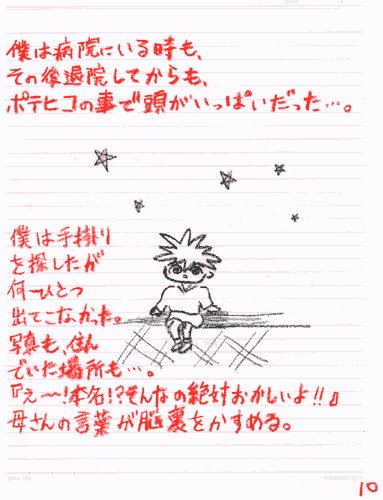 僕は病院にいる時も、
その後退院してからも、
ポテヒコの事で頭がいっぱいだった…。
僕は手掛り
を探したが
何一ひとつ
出てこなかった。
写真も、住ん
でいた場所も…。
『え〜!本名!?そんなの絶対おかしいよ!!』
母さんの言葉が脳裏をかすめる。
10